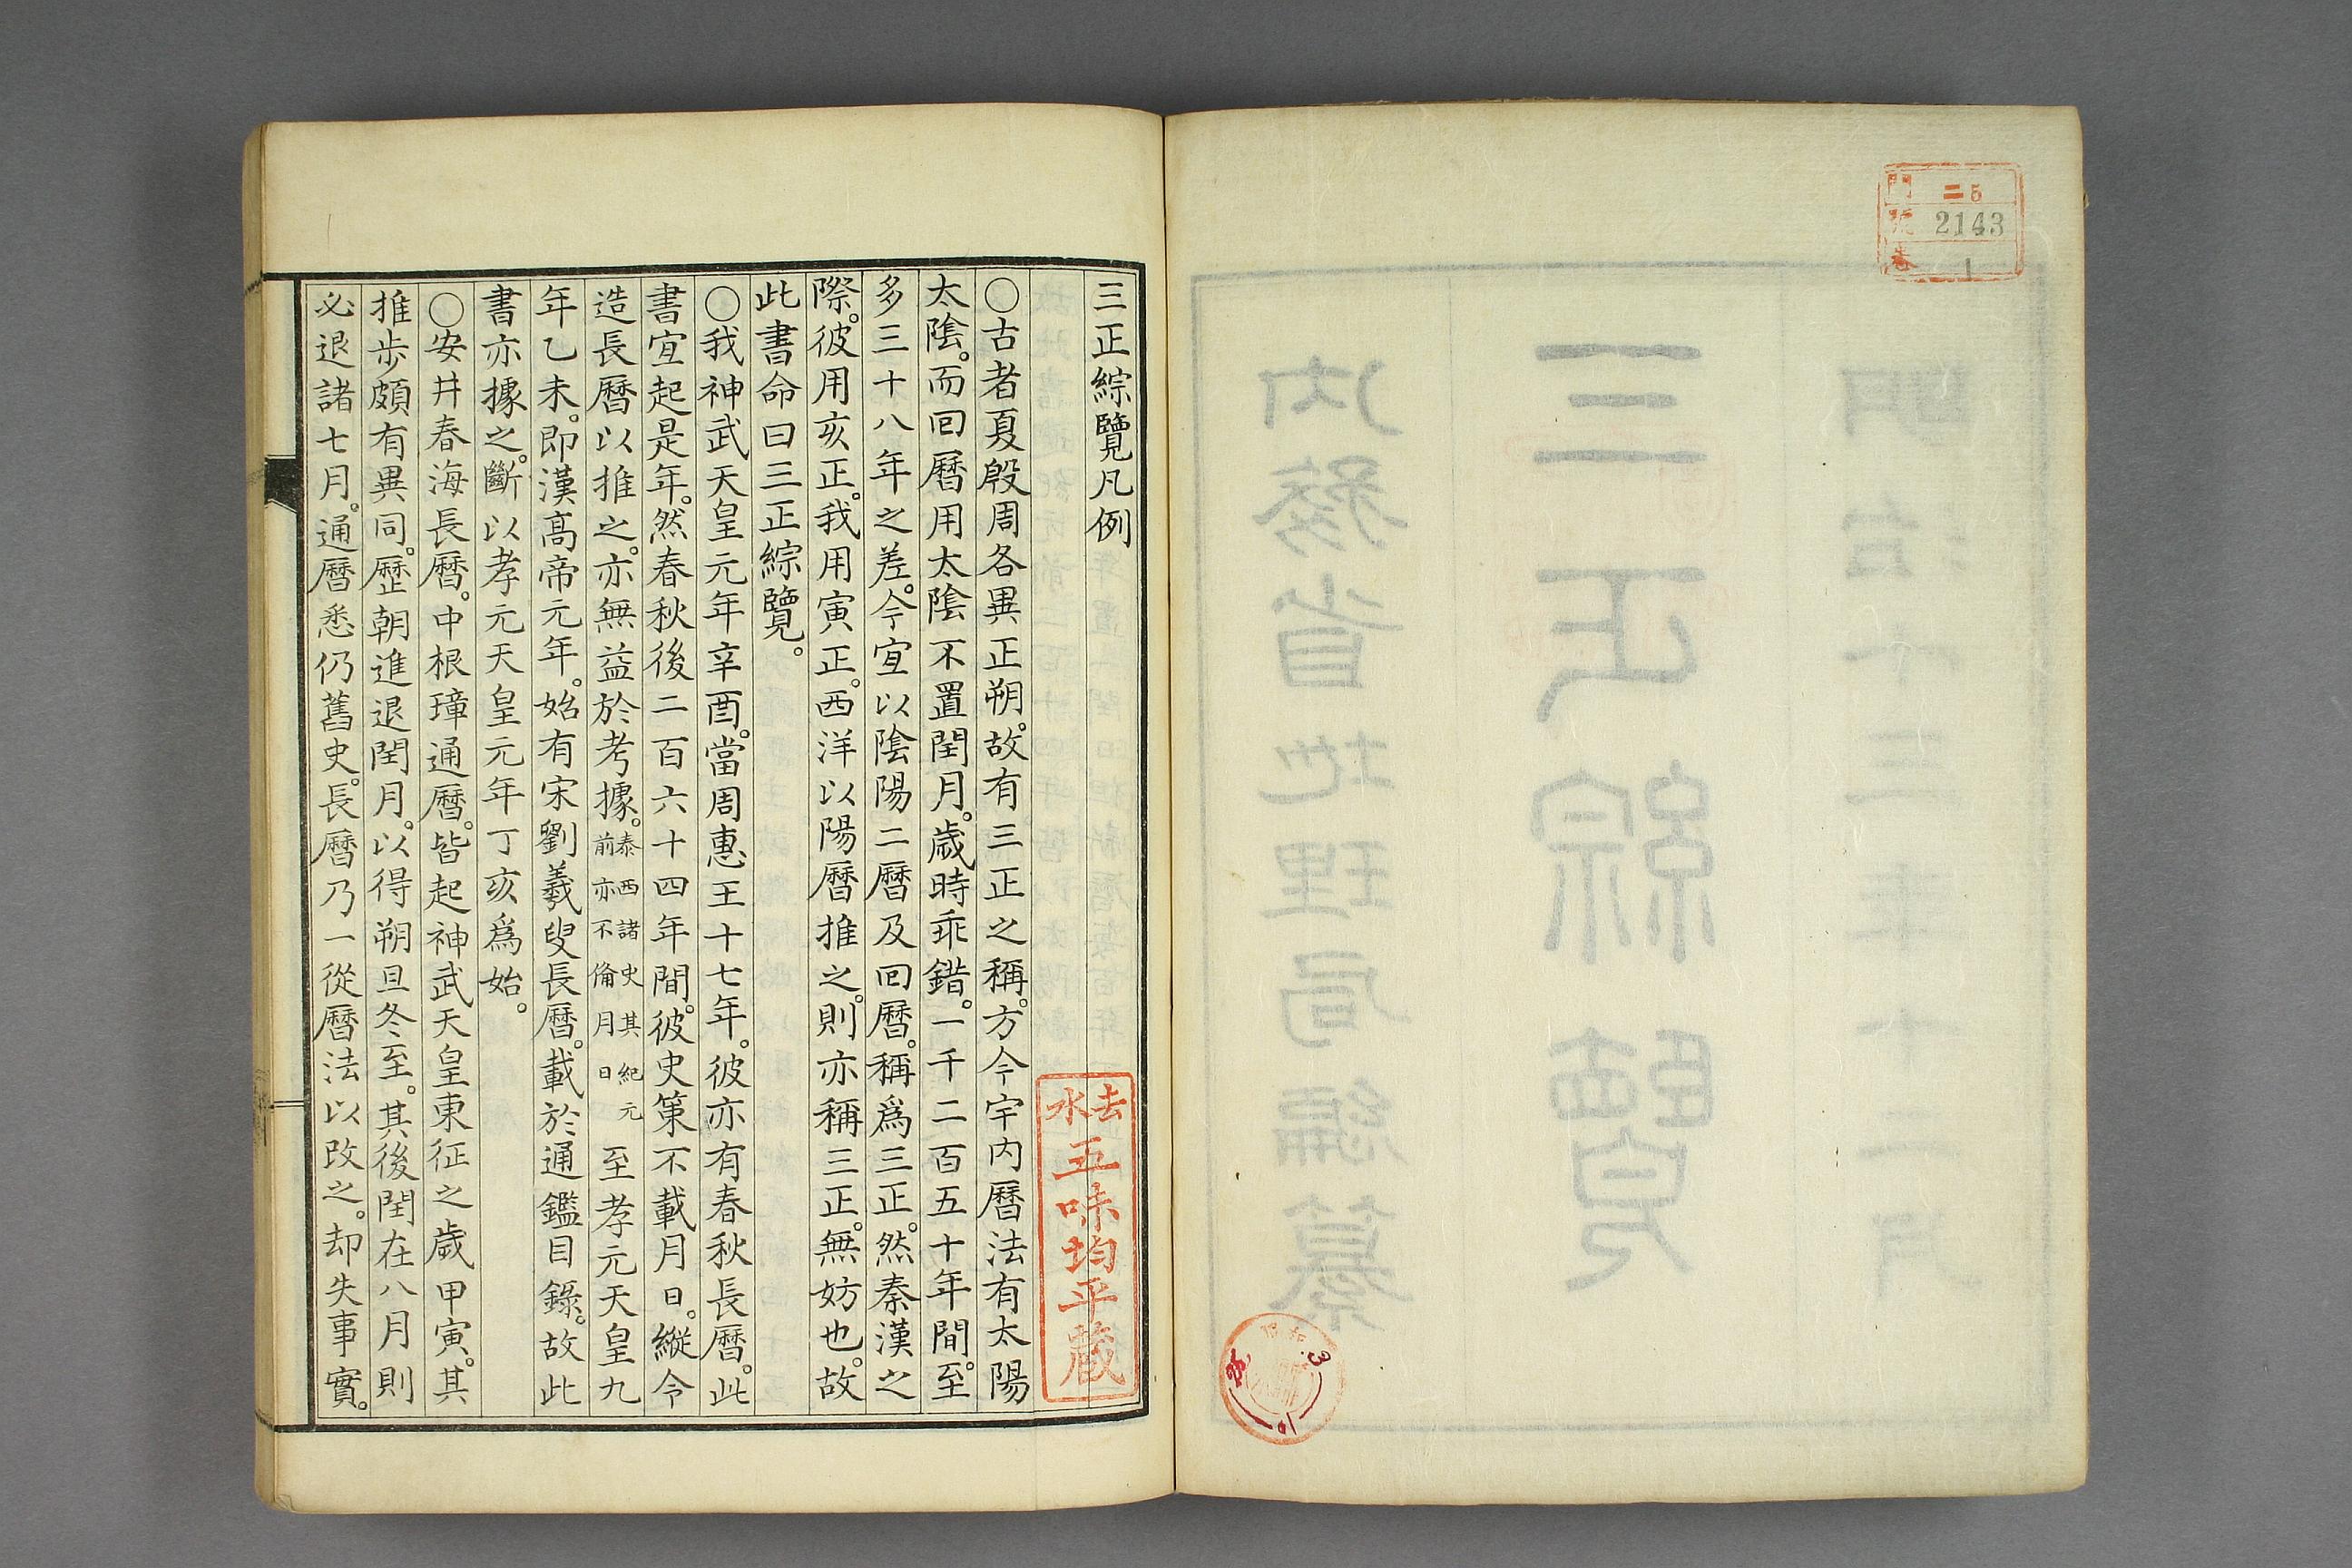 門 二5
號 2143
卷 1
明治十三年十二月
三正綜覽
内務省地理局編纂
三正綜覽凡例
去水
五味均平藏
〇古者夏殷周各異正朔。故有三正之稱。方今宇内曆法有太陽
太陰。而回曆用太陰不置閏月。歲時乖錯。一千二百五十年間。至
多三十八年之差。今宜以陰陽二曆及回曆。稱爲三正。然秦漢之
際。彼用亥正。我用寅正。西洋以陽曆推之。則亦稱三正。無妨也。故
此書命曰三正綜覽。
〇我神武天皇元年辛酉。當周惠王十七年。彼亦有春秋長曆。此
書宜起是年。然春秋後二百六十四年間。彼史策不載月日。縱令
造長曆以推之。亦無益於考據。泰西諸史其紀元前亦不倫月日至孝元天皇九
年乙未。即漢高帝元年。始有宋劉羲叟長曆。載於通鑑目錄。故此
書亦據之。斷以孝元天皇元年丁亥爲始。
〇安井春海長曆。中根璋通曆。皆起神武天皇東征之歲甲寅。其
推步頗有異同。歷朝進退閏月。以得朔旦冬至。其後閏在八月則
必退諸七月。通曆悉仍舊史。長曆乃一從曆法以改之。却失事實。